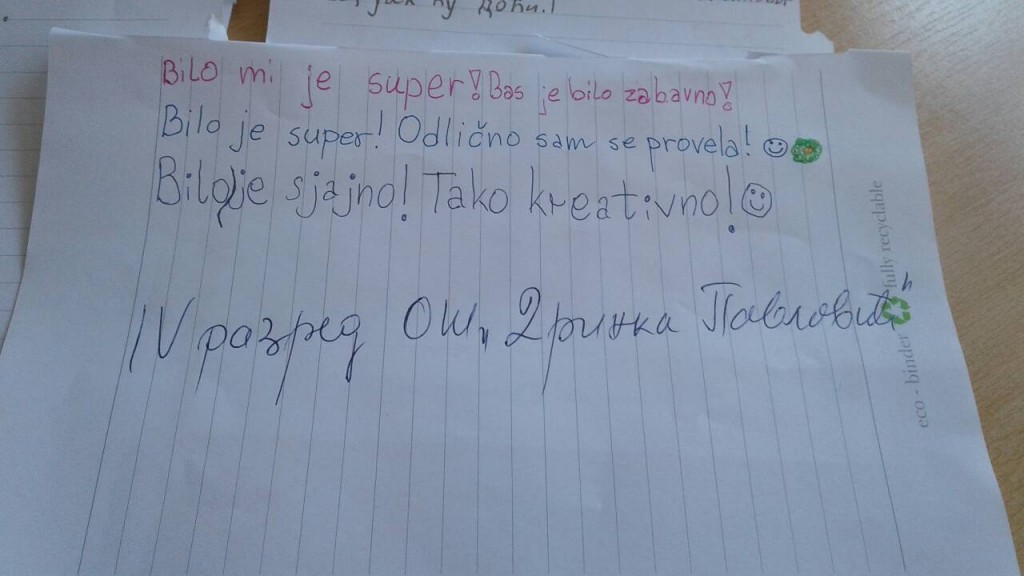 јак ћу доћи!
Bilo mi je super! Bas je bilo zabavno!
Bilo je super! Odlično sam se provela!
Bilo je sjajno! Tako kreativno!
IV разред ОШ „Дринка Павловић“
eco - binder fully recyclable